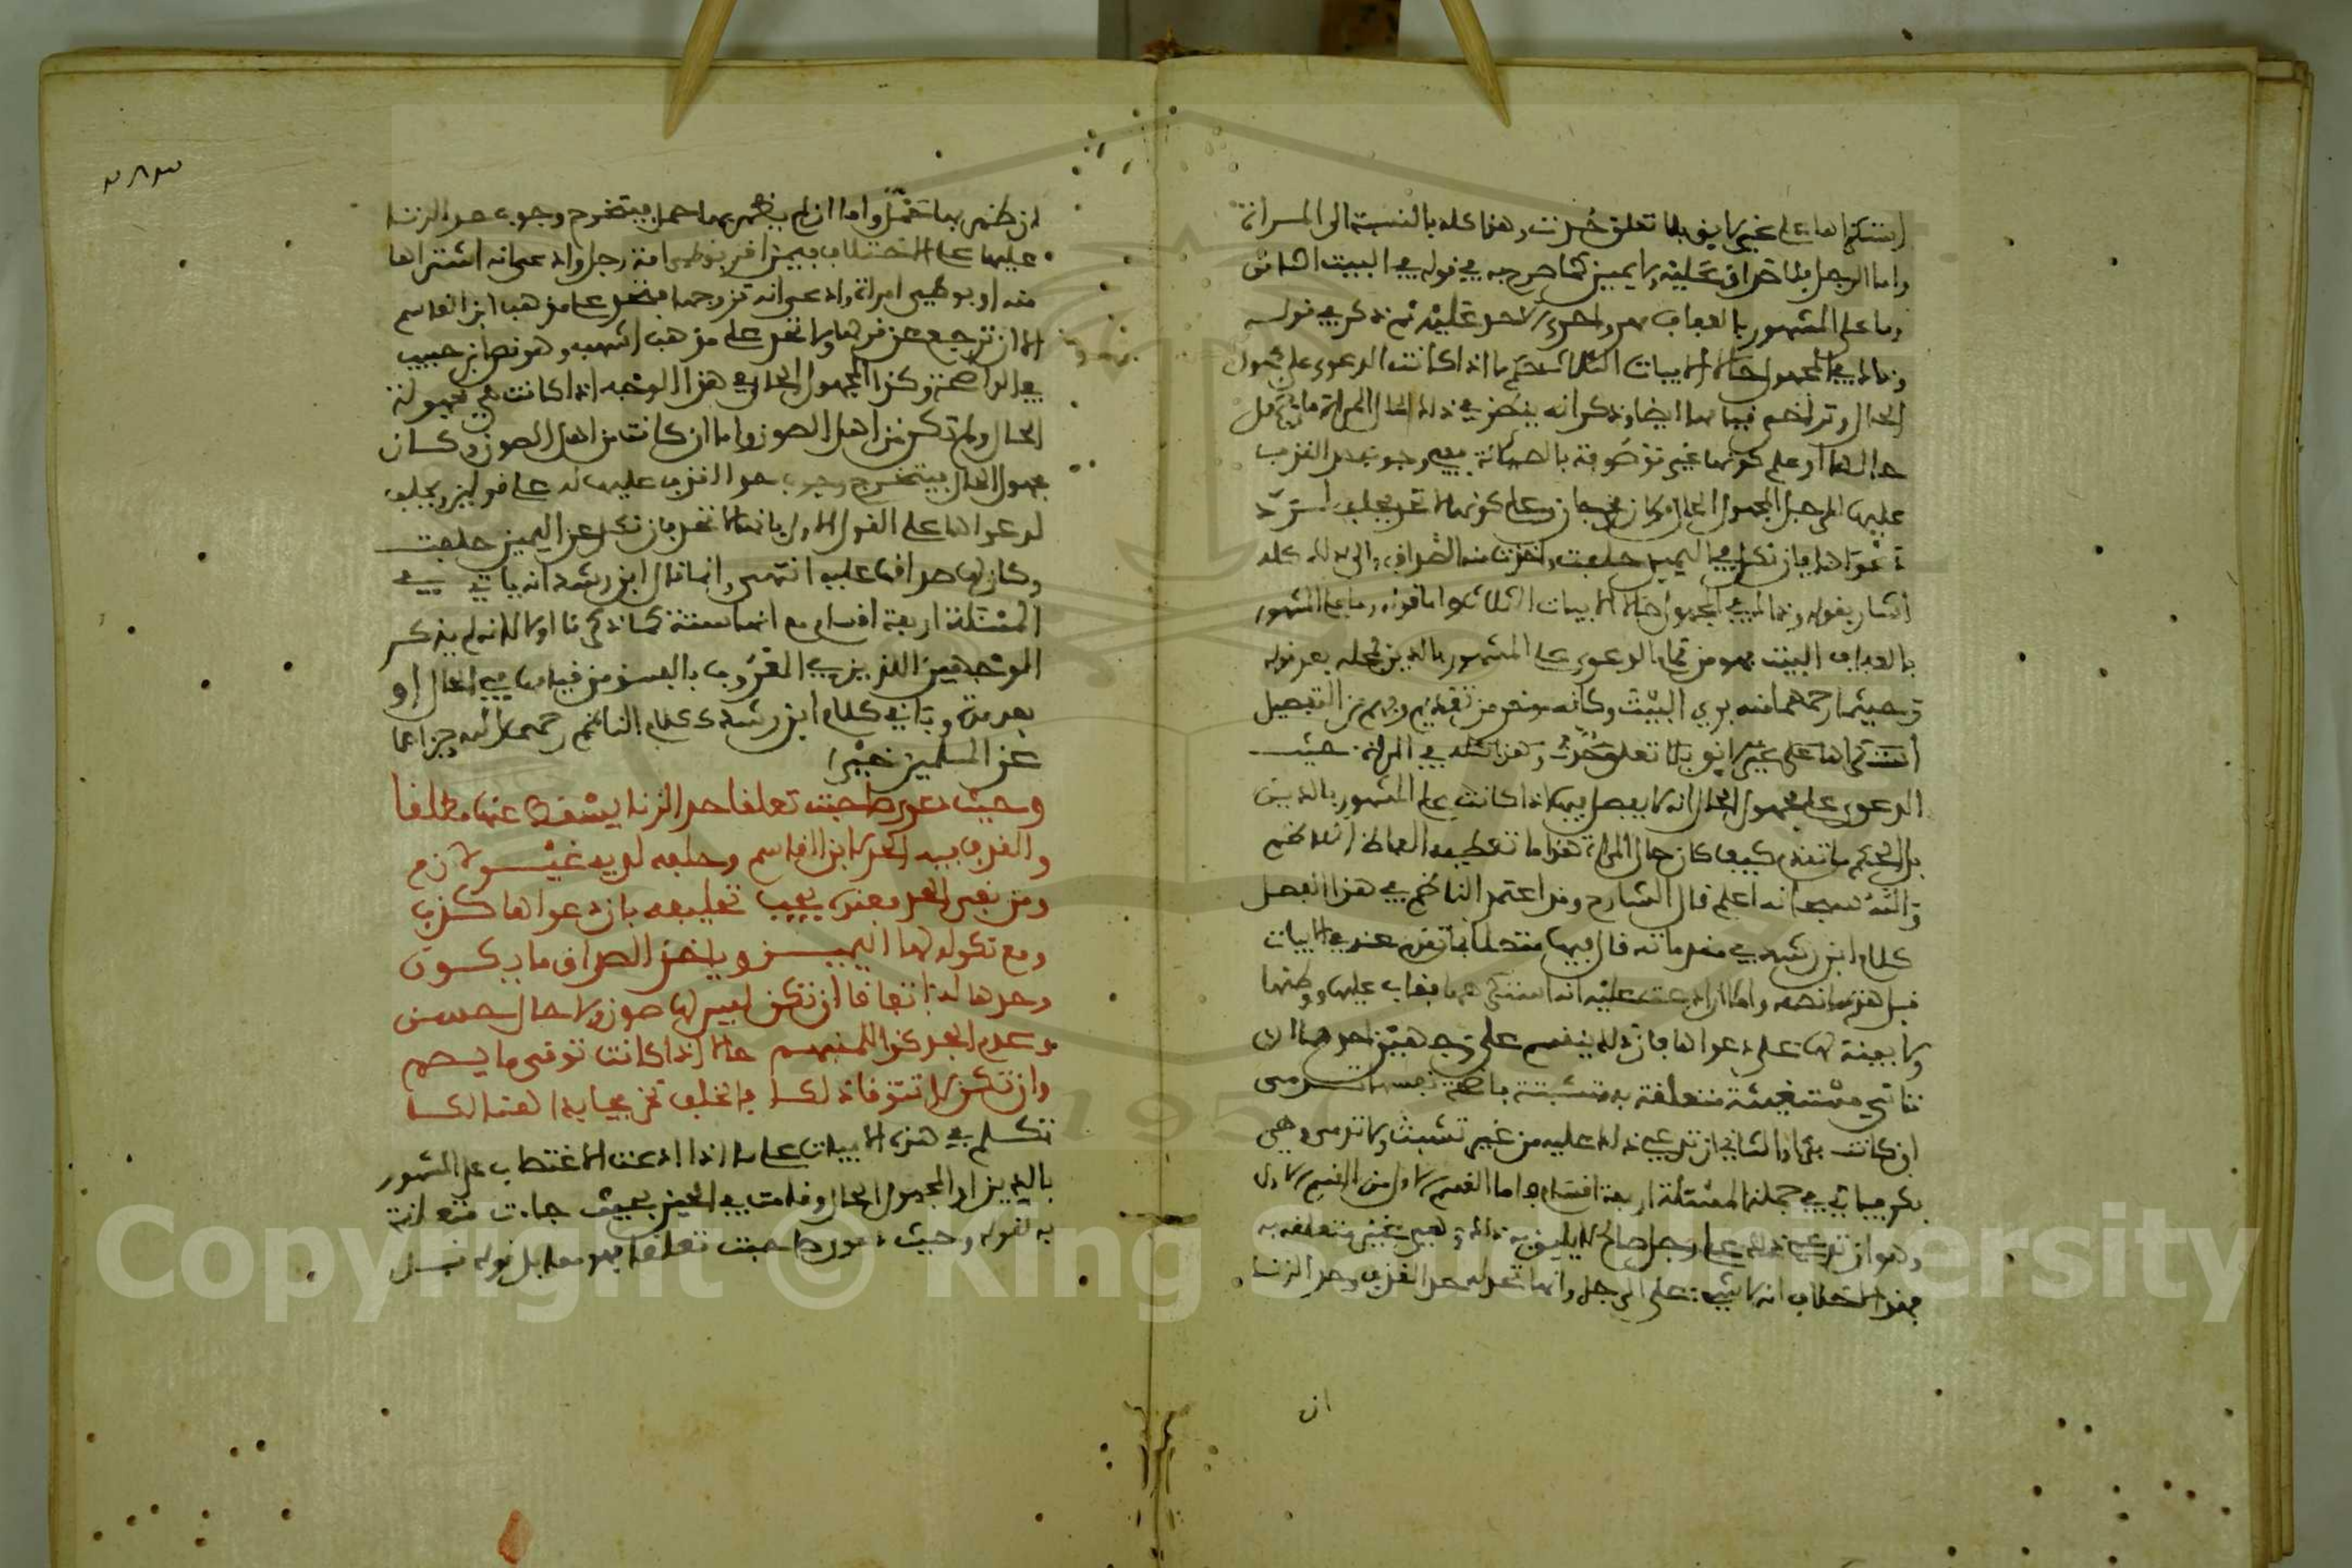 استكراها على غير لايق بلا تعلق حدت وهذا كله بالنسبة الى المراة
واما الرجل فلا صداق عليه ولا يمين كما صرح به في قوله في البيت الثاني
وما على المشهور بالعفاف مهر ولا حد عليه ثم ذكر في قوله
وذاك في المجهول حالا الابيات الثلاثة حكم ما اذا كانت الدعوى على مجهول
الحال وترجم فيها ايضا وذكر انه ينظر في ذلك لحال المراة فان جهل
حالها او على كونها غير موصوفة بالصيانة وجوب حد القذف
عليها للرجل المجهول الحال وعلى كونها لا تحد يحلف لرد
دعواها فان نكل في اليمين حلفت واخذت منه الصداق والى ذلك كله
اشار بقوله وذاك في المجهول حالا الابيات الثلاثة واما قوله وما على المشهور
بالعفاف البيت فهو من تمام الدعوى على المشهور بالدين محله بعد قوله
وحيثما رحمها منه بري البيت وكانه من تقديم التفصيل
استكراها على غير لايق بلا تعلق حدت وهذا كله في المراة حيث
الدعوى على مجهول الحال انه لا يفصل فيها اذا كانت على المشهور بالدين
بل الحكم ما تقدم كيف كان حال المراة هذا ما تعطيه الفاظ الناظم
والله سبحانه اعلم قال الشارح وقد اعتمد الناظم في هذا الفصل
كلام ابن رشد في مقدماته قال فيها متصلا بما تقدم عنه في الابيات
قبل هذه ما نصه واما ان ادعت عليه انه استكرهها فغاب عليها ووطئها
ولا بينة لها على دعواها فان ذلك ينقسم على وجهين احدهما ان
تاتي مستغيثة متعلقة به متشبثة فاضحة نفسها تدمى
ان كانت بكرا والثاني ان تدعي ذلك عليه من غير تشبث ولا تدمى وهي
بكر فياتي في جملة المسئلة اربعة اقسام فاما القسم الاول من القسم الاول
وهو ان تدعي ذلك على رجل صالح لا يليق به ذلك وهي غير متعلقة به
فهذا لا خلاف انه لا شيء على الرجل وانها تحد له حد القذف وحد الزنا
ان
ان ظهر بها حمل واما ان لم يظهر بها حمل فيتخرج وجوب حد الزنا
عليها على الاختلاف فيمن اقر بوطىء امة رجل وادعى انه اشتراها
منه او بوطىء امراة وادعى انه تزوجها فتحد على مذهب ابن القاسم
الا ان ترجع عن قولها ولا تحد على مذهب اشهب وهو نص ابن حبيب
في الواضحة وكذا المجهول الحال في هذا الوجه اذا كانت هي مجهولة
الحال ولم تكن من اهل الصون واما ان كانت من اهل الصون وكان
مجهول الحال فيتخرج وجوب حد القذف عليها له على قولين ويحلف
لدعواها على القول الاول بانها لا تحد فان نكل عن اليمين حلفت
وكان لها صداقها عليه انتهى وانما قال ابن رشد انه ياتي في
المسئلة اربعة اقسام مع انها ستة كما ذكرنا اولا لانه لم يذكر
الوجهين اللذين في المعروف بالفسق من قيامها في الحال او
بعد مدة وياتي كلام ابن رشد وكلام الناظم رحمهما الله وجزاهما
عن المسلمين خيرا
وحيث دعوى صاحبت تعلقا حد الزنا يسقط عنها مطلقا
والقذف فيه الحد لابن القاسم وحلفه لديه غير لازم
ومن نفى الحد فعنده يجب تحليفه بان دعواها كذب
ومع نكوله لها اليمين وياخذ الصداق ما يكون
وحدها له اتفاقا ان تكن ليس لها صون ولا حال حسن
وعدم الحد كذا للمنبهم حالا اذا كانت توقى ما يصم
وان تكن لا تتوقى ذلكا فالخلف تخريجا بدا هنالكا
تكلم في هذه الابيات على ما اذا ادعت الاغتصاب على المشهور
بالدين او المجهول الحال وقامت في الحين بحيث جاءت متعلقة
به لقوله وحيث دعوى صاحبت تعلقا فهو مقابل قوله قبل